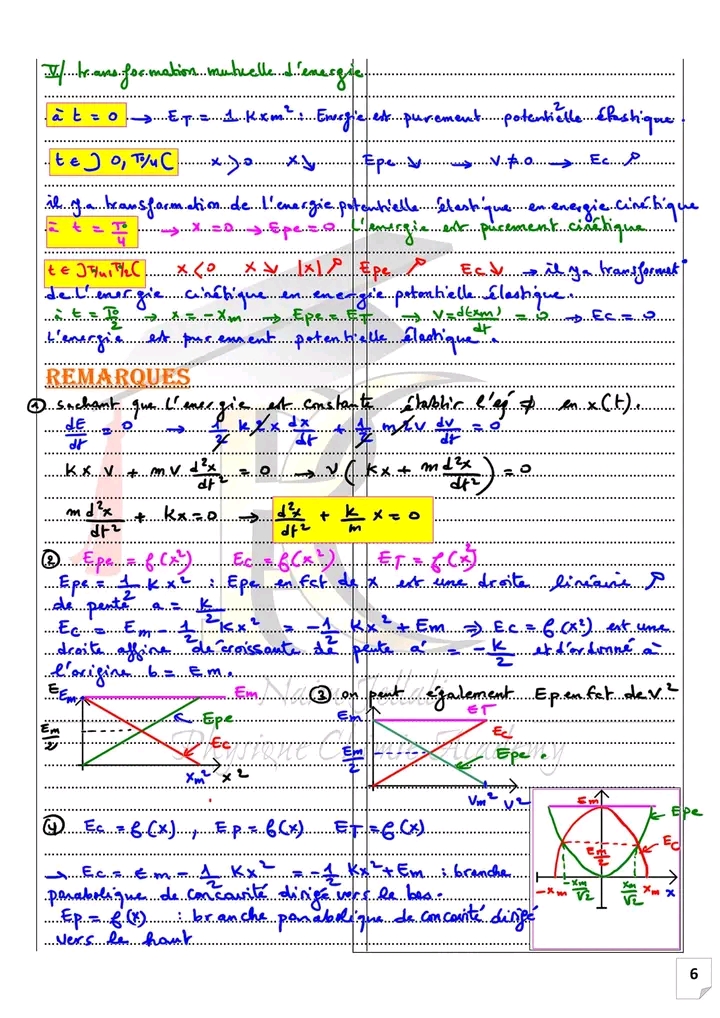 V/ transformation mutuelle d'énergie
à t = 0 → ET = 1/2 K xm² : Energie est purement potentielle élastique.
t ∈ ] 0, T0/4 [ x > 0 x ↘ Epe ↘ → v ≠ 0 → Ec ↗
il y a transformation de l'énergie potentielle élastique en energie cinétique
à t = T0/4 → x = 0 → Epe = 0 L'énergie est purement cinétique
t ∈ ] T0/4, T0/2 [ x < 0 x ↘ |x| ↗ Epe ↗ Ec ↘ → il y a transformat°
de L'energie cinétique en energie potentielle élastique.
à t = T0/2 → x = -xm → Epe = ET → V = d(xm)/dt = 0 → Ec = 0
L'energie est purement potentielle élastique.
REMARQUES
① sachant que L'energie est constante établir l'eq ≠ en x(t).
dE/dt = 0 → 1/2 K 2 x dx/dt + 1/2 m 2 v dv/dt = 0
K x v + m v d²x/dt² = 0 → v ( K x + m d²x/dt² ) = 0
m d²x/dt² + K x = 0 → d²x/dt² + k/m x = 0
② Epe = f(x²) Ec = f(x²) ET = f(x²)
Epe = 1/2 K x² : Epe en fct de x est une droite linéaire ↗
de pente a = k/2
Ec = Em - 1/2 K x² = -1/2 K x² + Em ⇒ Ec = f(x²) est une
droite affine décroissante de pente a' = -K/2 et d'ordonné à
l'origine b = Em.
E Em Em
Epe
Em/2
Ec
xm² x²
③ on peut également Ep en fct de v²
Em ET
Ec
Em/2
Epe
Vm² V²
④ Ec = f(x), Ep = f(x) ET = f(x)
→ Ec = Em - 1/2 K x² = -1/2 K x² + Em : branche
parabolique de concavité dirigé vers le bas.
Ep = f(x) : branche parabolique de concavité dirigé
vers le haut
Em
Epe
Ec
Em/2
-xm -xm/√2 xm/√2 xm x
Physique Chimie Academy
6